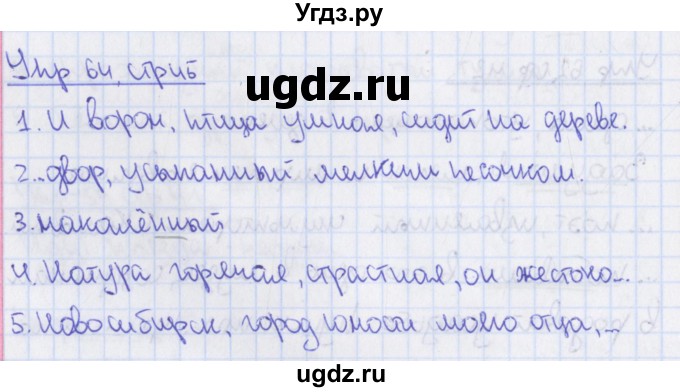 Угдз.ру
Упр 64, стр15
ugdz.ru
1. И ворон, птица умная, сидит на дереве.
ugdz.ru
2... двор, усыпанный мелким песочком.
3. накалённый
4. Натура горячая, страстная, он жестоко...
5. Новосибирск, город юности моего отца,...
ugdz.ru
ugdz.ru